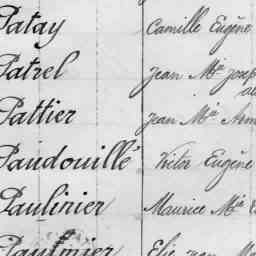 Patay Camille Eugène
Patrel Jean Mie Joseph
Pattier Jean Mie
Paudouillé Victor Eugène
Paulinier Maurice Mie
Paulmier Elie Jean